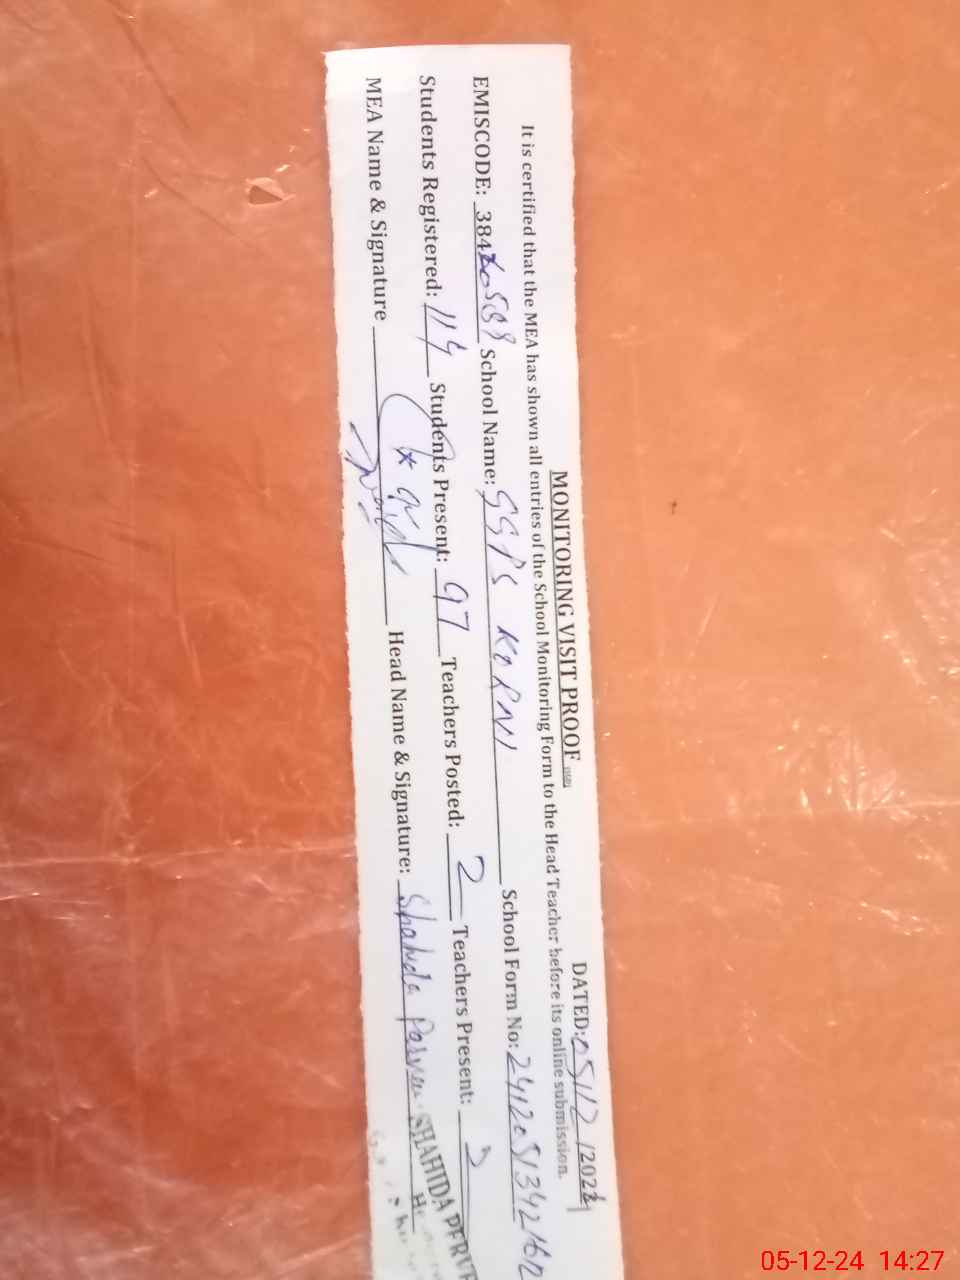 MONITORING VISIT PROOF
DATED: 05/12/2024
It is certified that the MEA has shown all entries of the School Monitoring Form to the Head Teacher before its online submission.
EMISCODE: 384 School Name: GGPS KORNI School Form No:
Students Registered: 114 Students Present: 97 Teachers Posted: 2 Teachers Present:
MEA Name & Signature Head Name & Signature: Shahida Parveen SHAHIDA PERVE
05-12-24 14:27